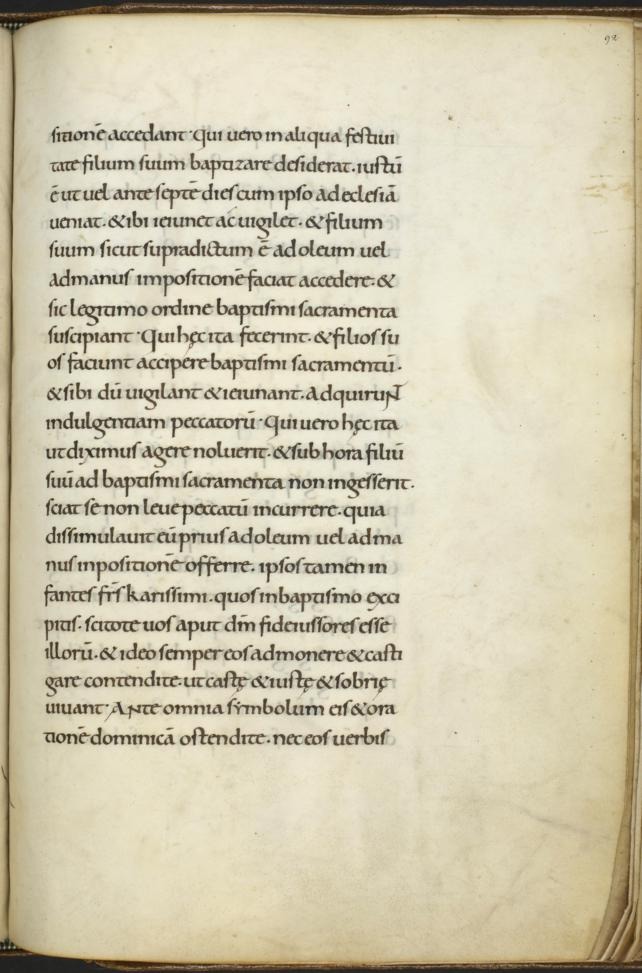 92
sitionē accedant· Qui uero in aliqua festiui
tate filium suum baptizare desiderat. iustū
ē ut uel ante septē dies cum ipso ad eclesiā
ueniat. & ibi ieiunet ac uigilet. & filium
suum sicut supradictum ē ad oleum uel
ad manus impositionē faciat accedere. &
sic legitimo ordine baptismi sacramenta
suscipiant· Qui hęc ita fecerint. & filios su
os faciunt accipere baptismi sacramentū.
& sibi dū uigilant & ieiunant. Adquirunt
indulgentiam peccatorū· Qui uero hęc ita
ut diximus agere noluerit. & sub hora filiū
suū ad baptismi sacramenta non ingesserit.
sciat se non leue peccatū incurrere. quia
dissimulauit eū prius ad oleum uel ad ma
nus inpositionē offerre. ipsos tamen in
fantes frs̄ karissimi. quos in baptismo exci
pitis. scitote uos aput dm̄ fideiussores esse
illorū. & ideo semper eos admonere & casti
gare contendite. ut castę & iustę & sobrię
uiuant· Ante omnia symbolum eis & ora
tionē dominicā ostendite. nec eos uerbis